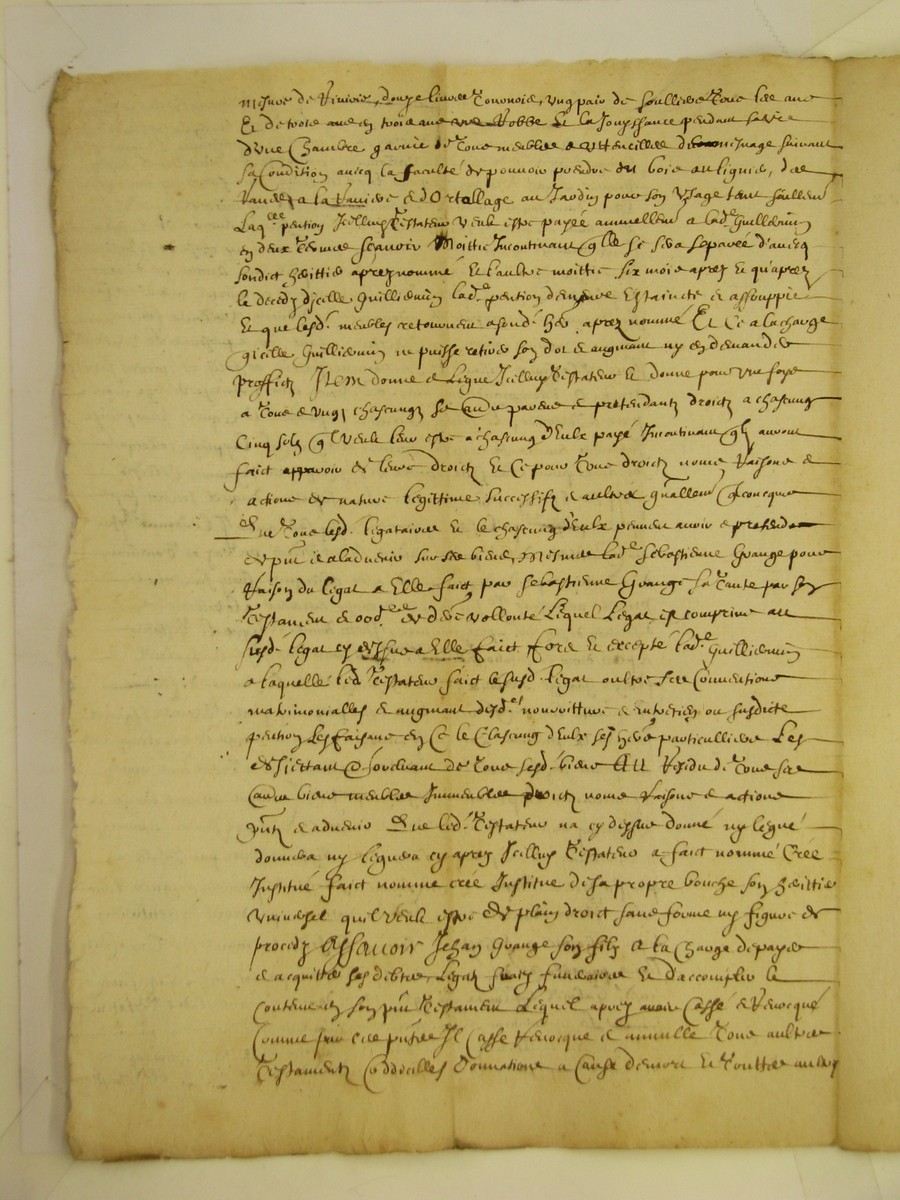 mesure de          douze livres tournois, ung pair de soulliers tous les ans
Et de trois ans en trois ans une Robbe Et la Jouyssance pendant sa vie
d'une Chambre garnie de tous meubles & uttencilles de mesnage suivant
sa Condition avecq la faculté de pouvoir prendre du bois au      , des
Raves a la Raviere & d'Ortollage au Jardin pour son Usage tant seullemt
Laqlle pention Icelluy Testateur Veult estre payée annuellemt a lade Guillermin
en deux termes scavoir Moittie Incontinant qlle se sera separée d'avecq
sondict heritier apres nommé Et l'aultre moittie six mois apres Et qu'apres
le deceds d'icelle Guillermin lade pention demeure Estaincte & assouppie
Et que lesd. meubles retournent a sond. her apres nommé Et Ce a la charge
qu'icelle Guillermin ne puisse retirer son dot & augmant ny en demander
proffict Item donne & legue Icelluy Testateur Et donne pour une foys
a tous & ungs chascungs ses aultres parens & pretendants droictz a chascung
Cinq solz ql Veult leur estre a chascung d'Eulx payé Incontinant qlz auront
faict apparoir de leurs droictz Et Ce pour tous droictz noms Raisons &
actions de nature legittime successifz & aultres quallemt quconcques
Que tous lesd. legataires Et le chascung d'Eulx peuvent avoir & pretendre
de pnt & a l'advenir sur ses biens, Mesmes lade Sebastienne Grange pour
Raison du legat a Elle faict par Sebastienne Grange sa Tante par son
Testament &           de derre vollonté Lequel Legat est comprins au
susd. legat cy dessus a Elle faict Fors Et excepté lade Guillermin
a laquelle led. Testateur faict le susd. legat oultre ses Conventions
matrimonialles & augmant desd. nourritture & entretien ou susdicte
pention Les faisant en Ce le Chascung d'Eulx ses hers particulliers Les
desjettant &           de tous sesd. biens Au Residu de tous ses
aultres biens meubles Immeubles droictz noms Raisons & actions
pntz & advenir Que led. Testateur na cy dessus donné ny legué
donnera ny leguera cy apres Icelluy Testateur a faict nommé Créé
Institué faict nomme crée Institue de sa propre bouche son heritier
Universel quil veult estre de plain droict sans forme ny figure de
proceds Assavoir Jehan Grange son filz A la Charge de payer
& acquitter ses debtes, Legatz fraiz funeraires Et d'accomplir le
Contenu en son pnt Testament Lequel apres avoir Cassé & Revocqué
Comme                Il Casse Revocque & annulle tous aultres
Testamentz Coddicilles Donnations a Cause de mort Et touttes aultres